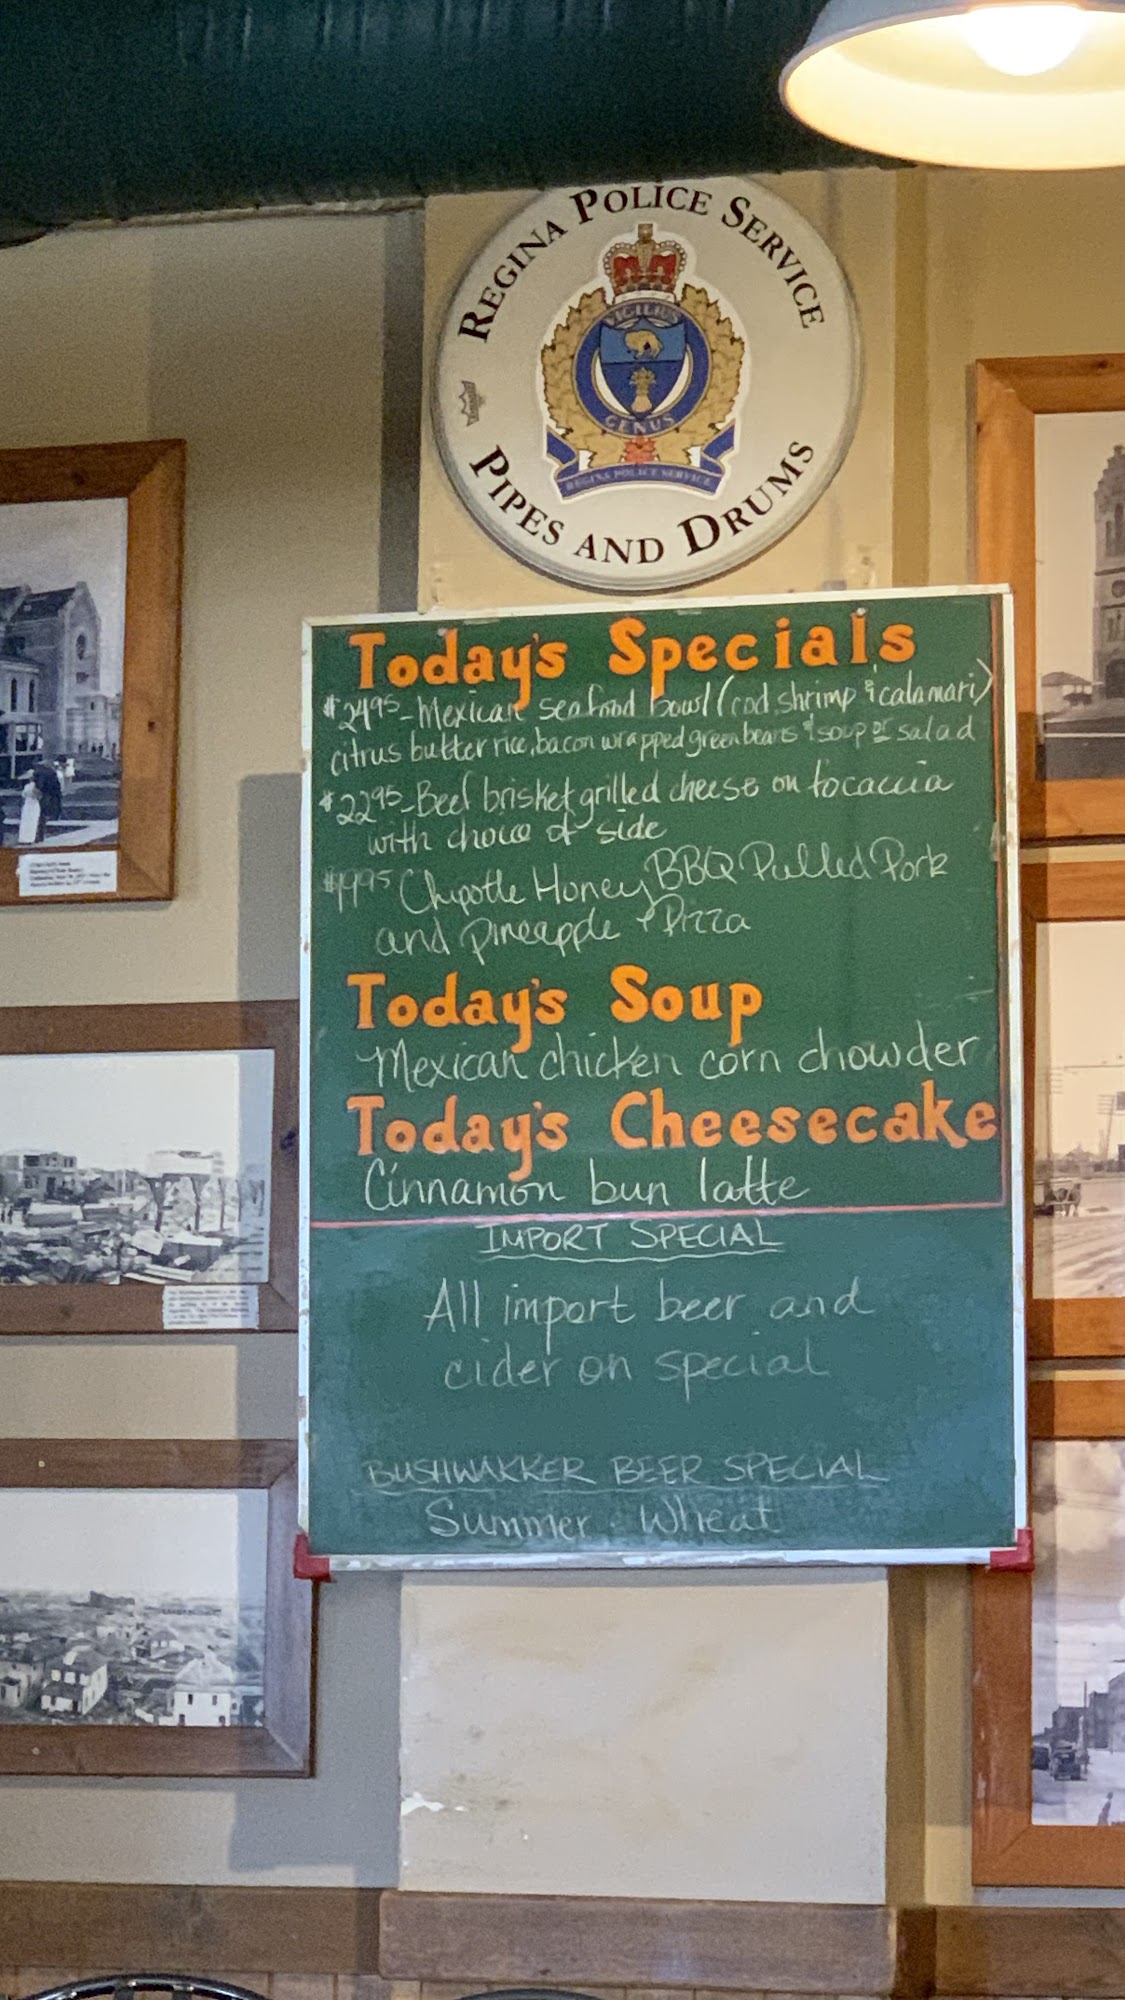 REGINA POLICE SERVICE
VIGILIUS
GENUS
REGINA POLICE SERVICE
PIPES AND DRUMS
Today's Specials
$2495-Mexican seafood bowl (cod shrimp & calamari)
citrus butter rice, bacon wrapped green beans & soup or salad
$2295-Beef brisket grilled cheese on focaccia
with choice of side
$1995 Chipotle Honey BBQ Pulled Pork
and pineapple Pizza
Today's Soup
Mexican chicken corn chowder
Today's Cheesecake
Cinnamon bun latte
IMPORT SPECIAL
All import beer and
cider on special
BUSHWAKKER BEER SPECIAL
Summer Wheat